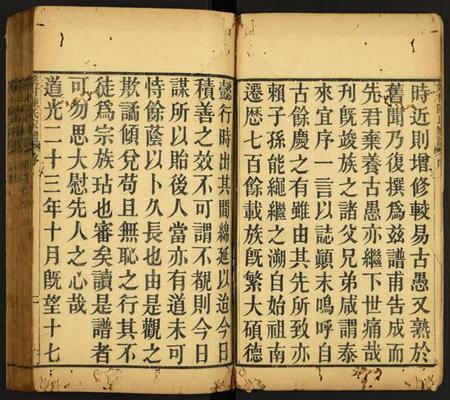 時近則增修較易古愚又熟於
舊聞乃復撰為茲譜甫告成而
先君棄養古愚亦繼下世痛哉
刊既竣族之諸父兄弟咸謂泰
來宜序一言以誌顛末嗚呼自
古餘慶之有雖由其先所致亦
賴子孫能繩繼之溯自始祖南
遷歷七百餘載族既繁大碩德
懿行時出其間綿延以迄今日
積善之效不可謂不覩則今日
謀所以貽後人當亦有道未可
恃餘蔭以卜久長也由是觀之
欺譎傾兌苟且無恥之行其不
徒為宗族玷也審矣讀是譜者
可勿思大慰先人之心哉
道光二十三年十月既望十七